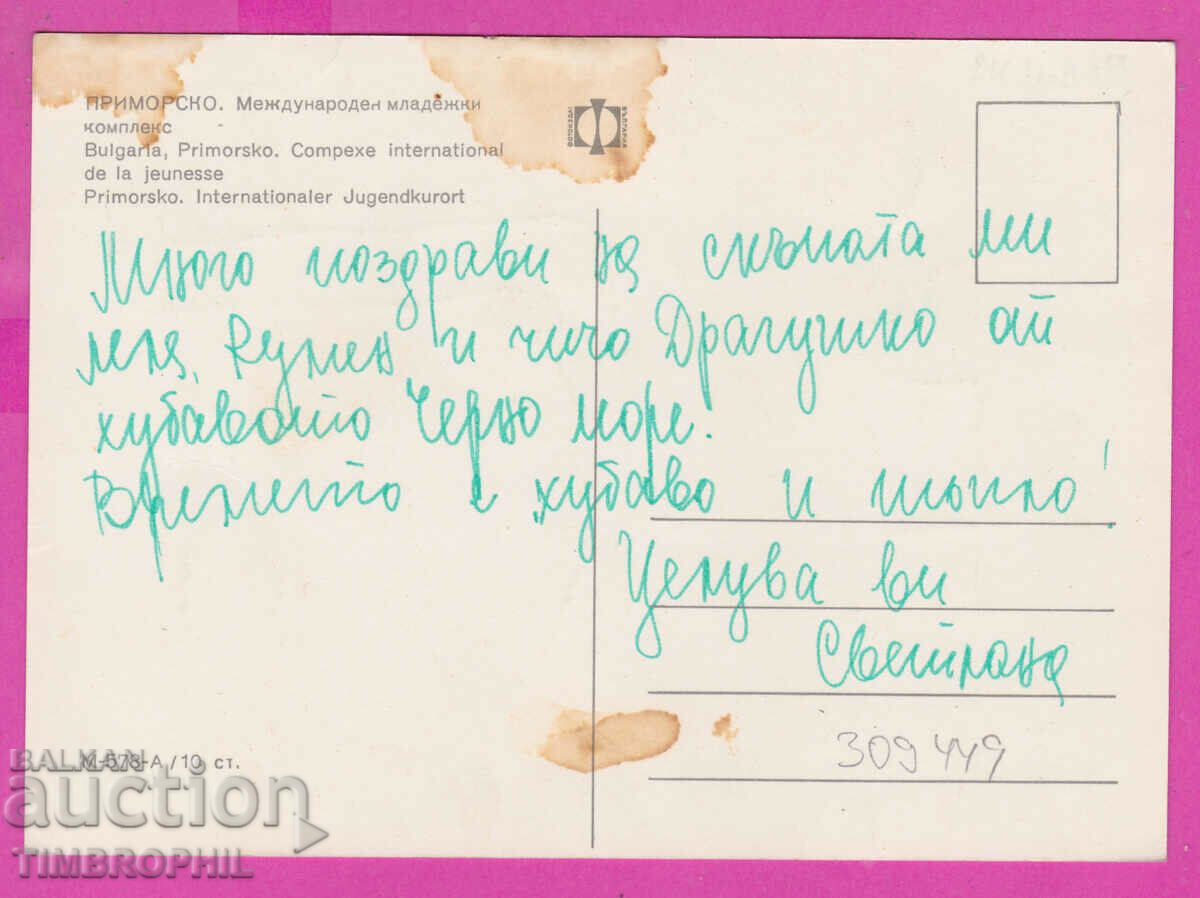 ПРИМОРСКО. Международен младежки
комплекс
Bulgaria, Primorsko. Compexe international
de la jeunesse
Primorsko. Internationaler Jugendkurort
ФОТОИЗДАТ
БЪЛГАРИЯ
Много поздрави на скъпата ми
леля, Румен и чичо Драгушко от
хубавото Черно море.
Времето е хубаво и топло!
Целува ви
Светлана
309449
М-578-А/10 ст.
BALKAN
auction
TIMBROPHIL